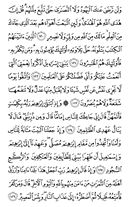 وَلَن تَرْضَىٰ عَنكَ ٱلْيَهُودُ وَلَا ٱلنَّصَٰرَىٰ حَتَّىٰ تَتَّبِعَ مِلَّتَهُمْ ۗ قُلْ إِنَّ
هُدَى ٱللَّهِ هُوَ ٱلْهُدَىٰ ۗ وَلَئِنِ ٱتَّبَعْتَ أَهْوَآءَهُم بَعْدَ ٱلَّذِى جَآءَكَ
مِنَ ٱلْعِلْمِ ۙ مَا لَكَ مِنَ ٱللَّهِ مِن وَلِىٍّ وَلَا نَصِيرٍ ١٢٠ ٱلَّذِينَ ءَاتَيْنَٰهُمُ
ٱلْكِتَٰبَ يَتْلُونَهُۥ حَقَّ تِلَاوَتِهِۦٓ أُو۟لَٰٓئِكَ يُؤْمِنُونَ بِهِۦ ۗ وَمَن يَكْفُرْ بِهِۦ
فَأُو۟لَٰٓئِكَ هُمُ ٱلْخَٰسِرُونَ ١٢١ يَٰبَنِىٓ إِسْرَٰٓءِيلَ ٱذْكُرُوا۟ نِعْمَتِىَ ٱلَّتِىٓ
أَنْعَمْتُ عَلَيْكُمْ وَأَنِّى فَضَّلْتُكُمْ عَلَى ٱلْعَٰلَمِينَ ١٢٢ وَٱتَّقُوا۟
يَوْمًا لَّا تَجْزِى نَفْسٌ عَن نَّفْسٍ شَيْـًٔا وَلَا يُقْبَلُ مِنْهَا عَدْلٌ وَلَا تَنفَعُهَا
شَفَٰعَةٌ وَلَا هُمْ يُنصَرُونَ ١٢٣ ۞ وَإِذِ ٱبْتَلَىٰٓ إِبْرَٰهِـۧمَ رَبُّهُۥ بِكَلِمَٰتٍ
فَأَتَمَّهُنَّ ۖ قَالَ إِنِّى جَاعِلُكَ لِلنَّاسِ إِمَامًا ۖ قَالَ وَمِن ذُرِّيَّتِى ۖ قَالَ لَا
يَنَالُ عَهْدِى ٱلظَّٰلِمِينَ ١٢٤ وَإِذْ جَعَلْنَا ٱلْبَيْتَ مَثَابَةً
لِّلنَّاسِ وَأَمْنًا وَٱتَّخِذُوا۟ مِن مَّقَامِ إِبْرَٰهِـۧمَ مُصَلًّى ۖ وَعَهِدْنَآ
إِلَىٰٓ إِبْرَٰهِـۧمَ وَإِسْمَٰعِيلَ أَن طَهِّرَا بَيْتِىَ لِلطَّآئِفِينَ وَٱلْعَٰكِفِينَ
وَٱلرُّكَّعِ ٱلسُّجُودِ ١٢٥ وَإِذْ قَالَ إِبْرَٰهِـۧمُ رَبِّ ٱجْعَلْ هَٰذَا بَلَدًا
ءَامِنًا وَٱرْزُقْ أَهْلَهُۥ مِنَ ٱلثَّمَرَٰتِ مَنْ ءَامَنَ مِنْهُم بِٱللَّهِ وَٱلْيَوْمِ ٱلْءَاخِرِ ۖ قَالَ وَمَن كَفَرَ
فَأُمَتِّعُهُۥ قَلِيلًا ثُمَّ أَضْطَرُّهُۥٓ إِلَىٰ عَذَابِ ٱلنَّارِ ۖ وَبِئْسَ ٱلْمَصِيرُ ١٢٦